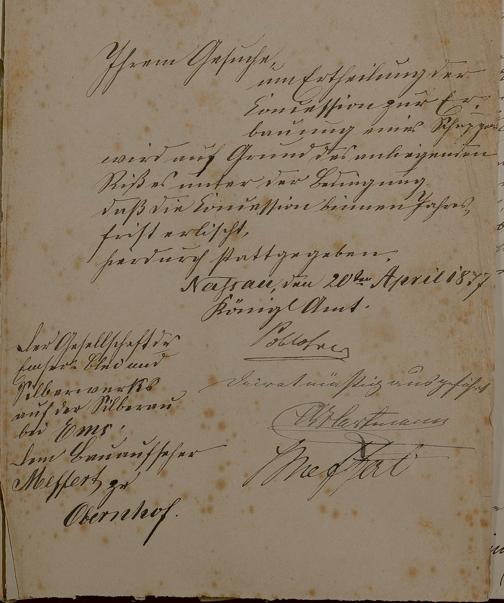 Ihrem Gesuche,
um Ertheilung der
Koncession zur Er-
bauung eines Schoppens
wird auf Grund des anliegenden
Rißes unter der Bedingung
daß die Koncession binnen Jahres-
frist erlischt,
hierdurch stattgegeben.
Nassau, den 20ten April 1877
Königl Amt.
Der Gesellschaft des
Emser Blei und
Silberwerks
auf der Silberau
bei Ems.
Dem Bauaufseher
Meffert zu
Obernhof.
ausgeführt